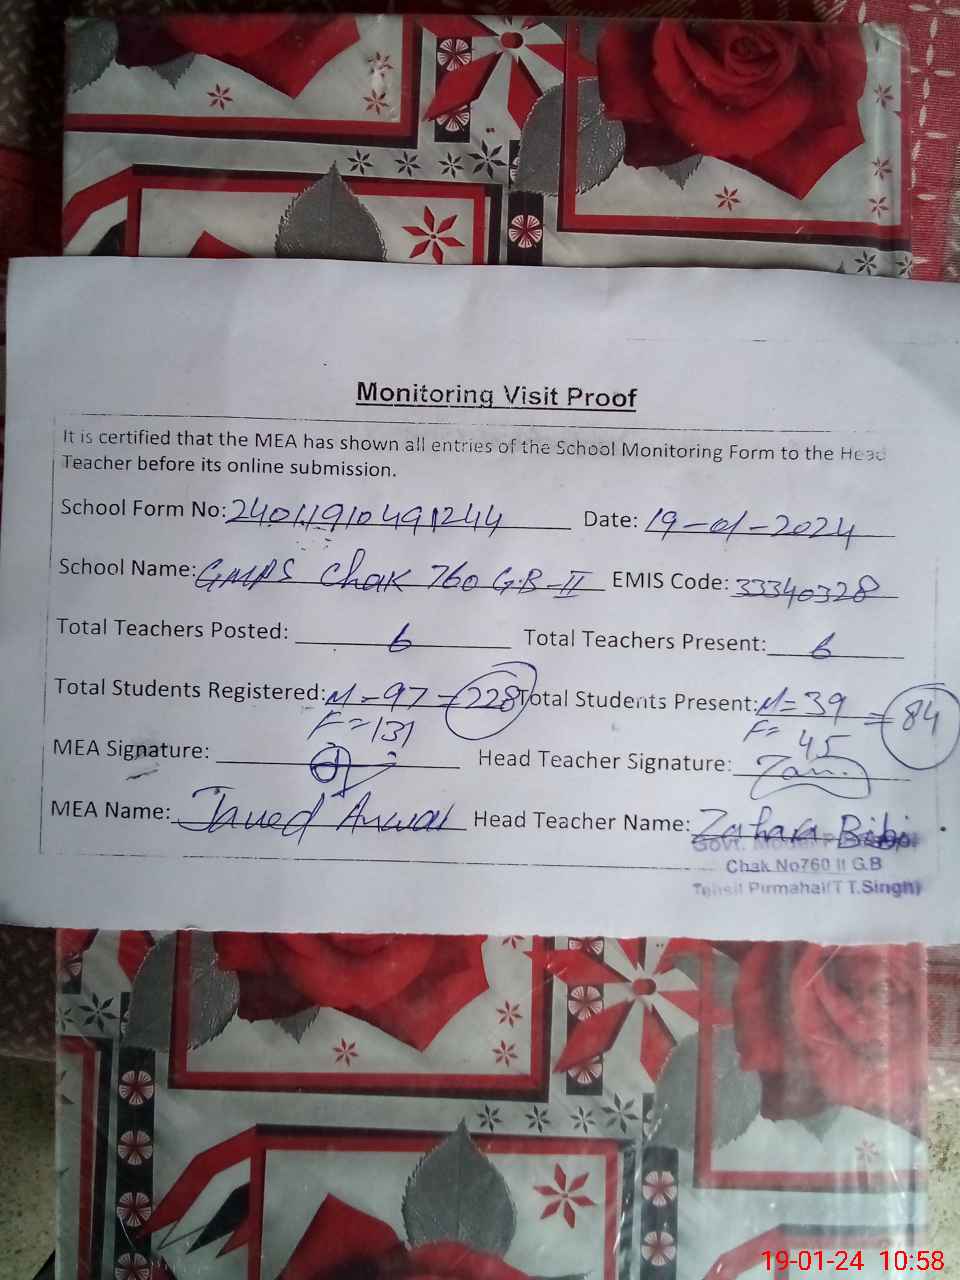 Monitoring Visit Proof
It is certified that the MEA has shown all entries of the School Monitoring Form to the Head
Teacher before its online submission.
School Form No: 24011910491244 Date: 19-01-2024
School Name: GMPS Chak 760 GB-II EMIS Code: 33340328
Total Teachers Posted: 6 Total Teachers Present: 6
Total Students Registered: M-97-228 Total Students Present: M=39
F=131 F=45 =84
MEA Signature: Head Teacher Signature:
MEA Name: Javed Anwar Head Teacher Name: Zahara Bibi
Govt. Model
Chak No760 II G.B
Tehsil Pirmahal(T T.Singh)
19-01-24 10:58